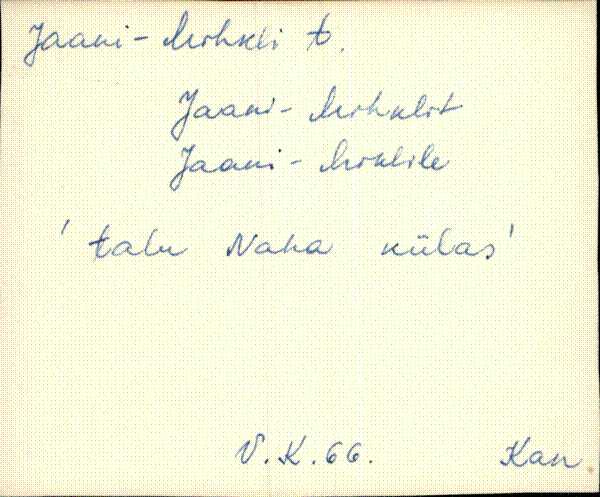 Jaani-Mihkli t.
Jaani-Mihklit
Jaani-Mihklile
'talu Naha külas'
V.K.66. Kan